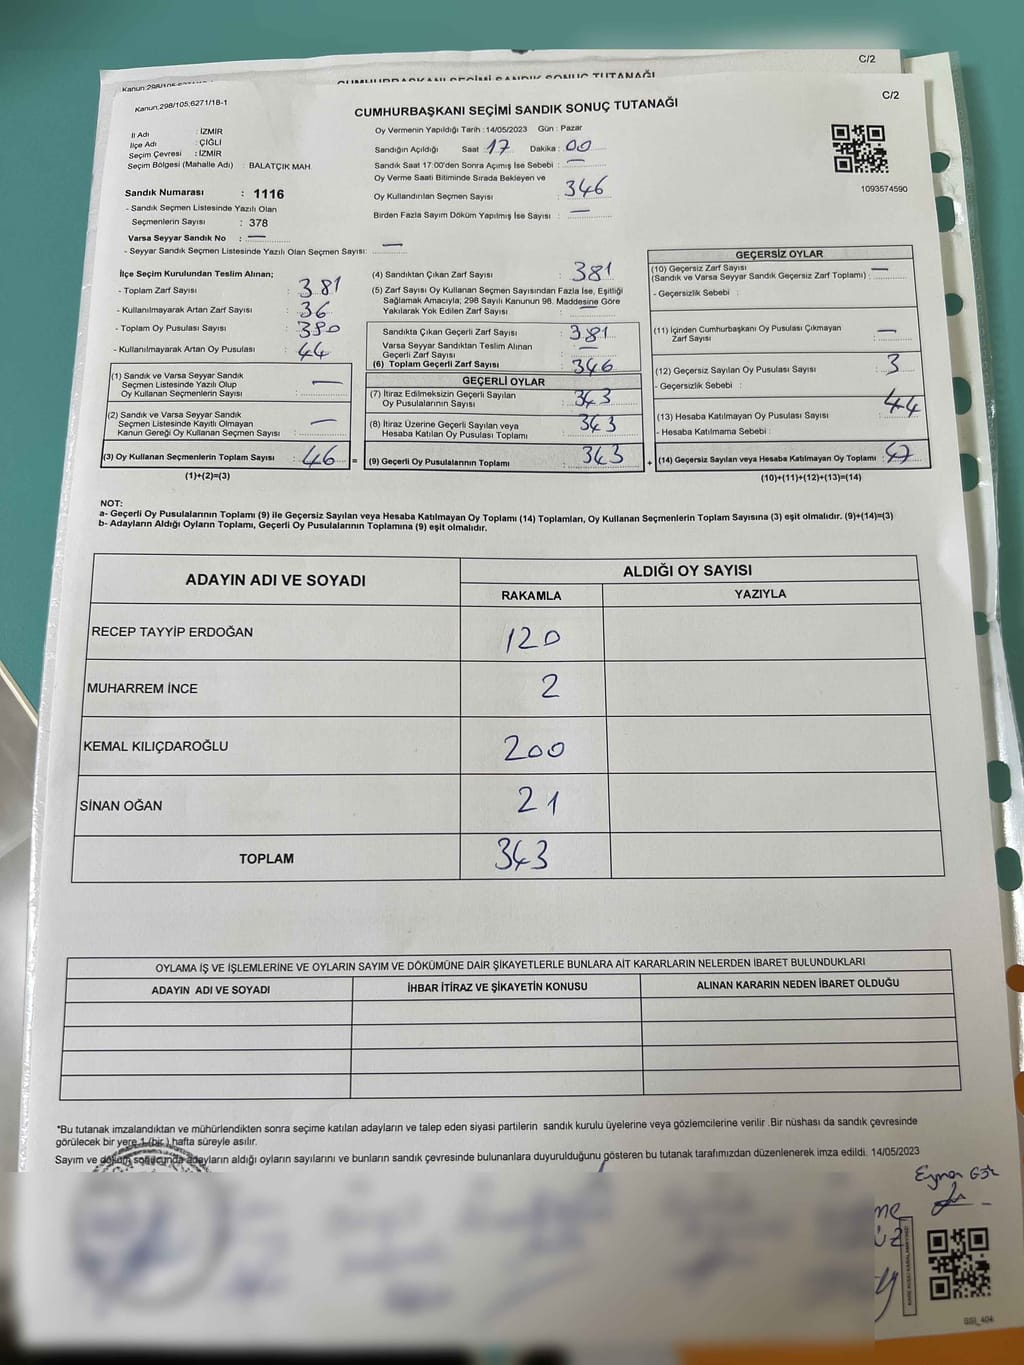 C/2
Kanun:298/105;6271/18-1
CUMHURBAŞKANI SEÇİMİ SANDIK SONUÇ TUTANAĞI
C/2
CUMHURBAŞKANI SEÇİMİ SANDIK SONUÇ TUTANAĞI
Kanun:298/105;6271/18-1
İl Adı : İZMİR
İlçe Adı : ÇİĞLİ
Seçim Çevresi : İZMİR
Seçim Bölgesi (Mahalle Adı) : BALATÇIK MAH.
Sandık Numarası : 1116
- Sandık Seçmen Listesinde Yazılı Olan
Seçmenlerin Sayısı : 378
Varsa Seyyar Sandık No : —
- Seyyar Sandık Seçmen Listesinde Yazılı Olan Seçmen Sayısı: —
Oy Vermenin Yapıldığı Tarih : 14/05/2023 Gün : Pazar
Sandığın Açıldığı Saat 17 Dakika : 00
Sandık Saat 17:00'den Sonra Açımış İse Sebebi : —
Oy Verme Saati Bitiminde Sırada Bekleyen ve
Oy Kullandırılan Seçmen Sayısı : 346
Birden Fazla Sayım Döküm Yapılmış İse Sayısı : —
1093574590
İlçe Seçim Kurulundan Teslim Alınan;
- Toplam Zarf Sayısı : 381
- Kullanılmayarak Artan Zarf Sayısı : 36
- Toplam Oy Pusulası Sayısı : 390
- Kullanılmayarak Artan Oy Pusulası : 44
(1) Sandık ve Varsa Seyyar Sandık
Seçmen Listesinde Yazılı Olup
Oy Kullanan Seçmenlerin Sayısı : —
(2) Sandık ve Varsa Seyyar Sandık
Seçmen Listesinde Kayıtlı Olmayan
Kanun Gereği Oy Kullanan Seçmen Sayısı : —
(3) Oy Kullanan Seçmenlerin Toplam Sayısı : 46
(1)+(2)=(3)
(4) Sandıktan Çıkan Zarf Sayısı : 381
(5) Zarf Sayısı Oy Kullanan Seçmen Sayısından Fazla İse, Eşitliği
Sağlamak Amacıyla; 298 Sayılı Kanunun 98. Maddesine Göre
Yakılarak Yok Edilen Zarf Sayısı : —
Sandıkta Çıkan Geçerli Zarf Sayısı : 381
Varsa Seyyar Sandıktan Teslim Alınan
Geçerli Zarf Sayısı : —
(6) Toplam Geçerli Zarf Sayısı : 346
GEÇERLİ OYLAR
(7) İtiraz Edilmeksizin Geçerli Sayılan
Oy Pusulalarının Sayısı : 343
(8) İtiraz Üzerine Geçerli Sayılan veya
Hesaba Katılan Oy Pusulası Toplamı : 343
= (9) Geçerli Oy Pusulalarının Toplamı : 343
GEÇERSİZ OYLAR
(10) Geçersiz Zarf Sayısı
(Sandık ve Varsa Seyyar Sandık Geçersiz Zarf Toplamı) : —
- Geçersizlik Sebebi :
(11) İçinden Cumhurbaşkanı Oy Pusulası Çıkmayan
Zarf Sayısı : —
(12) Geçersiz Sayılan Oy Pusulası Sayısı : 3
- Geçersizlik Sebebi :
(13) Hesaba Katılmayan Oy Pusulası Sayısı : 44
- Hesaba Katılmama Sebebi :
+ (14) Geçersiz Sayılan veya Hesaba Katılmayan Oy Toplamı :
(10)+(11)+(12)+(13)=(14)
NOT:
a- Geçerli Oy Pusulalarının Toplamı (9) ile Geçersiz Sayılan veya Hesaba Katılmayan Oy Toplamı (14) Toplamları, Oy Kullanan Seçmenlerin Toplam Sayısına (3) eşit olmalıdır. (9)+(14)=(3)
b- Adayların Aldığı Oyların Toplamı, Geçerli Oy Pusulalarının Toplamına (9) eşit olmalıdır.
ADAYIN ADI VE SOYADI
ALDIĞI OY SAYISI
RAKAMLA YAZIYLA
RECEP TAYYİP ERDOĞAN 120
MUHARREM İNCE 2
KEMAL KILIÇDAROĞLU 200
SİNAN OĞAN 21
TOPLAM 343
OYLAMA İŞ VE İŞLEMLERİNE VE OYLARIN SAYIM VE DÖKÜMÜNE DAİR ŞİKAYETLERLE BUNLARA AİT KARARLARIN NELERDEN İBARET BULUNDUKLARI
ADAYIN ADI VE SOYADI İHBAR İTİRAZ VE ŞİKAYETİN KONUSU ALINAN KARARIN NEDEN İBARET OLDUĞU
*Bu tutanak imzalandıktan ve mühürlendikten sonra seçime katılan adayların ve talep eden siyasi partilerin sandık kurulu üyelerine veya gözlemcilerine verilir .Bir nüshası da sandık çevresinde
görülecek bir yere 1 (bir ) hafta süreyle asılır.
Sayım ve döküm sonucunda adayların aldığı oyların sayılarını ve bunların sandık çevresinde bulunanlara duyurulduğunu gösteren bu tutanak tarafımızdan düzenlenerek imza edildi. 14/05/2023